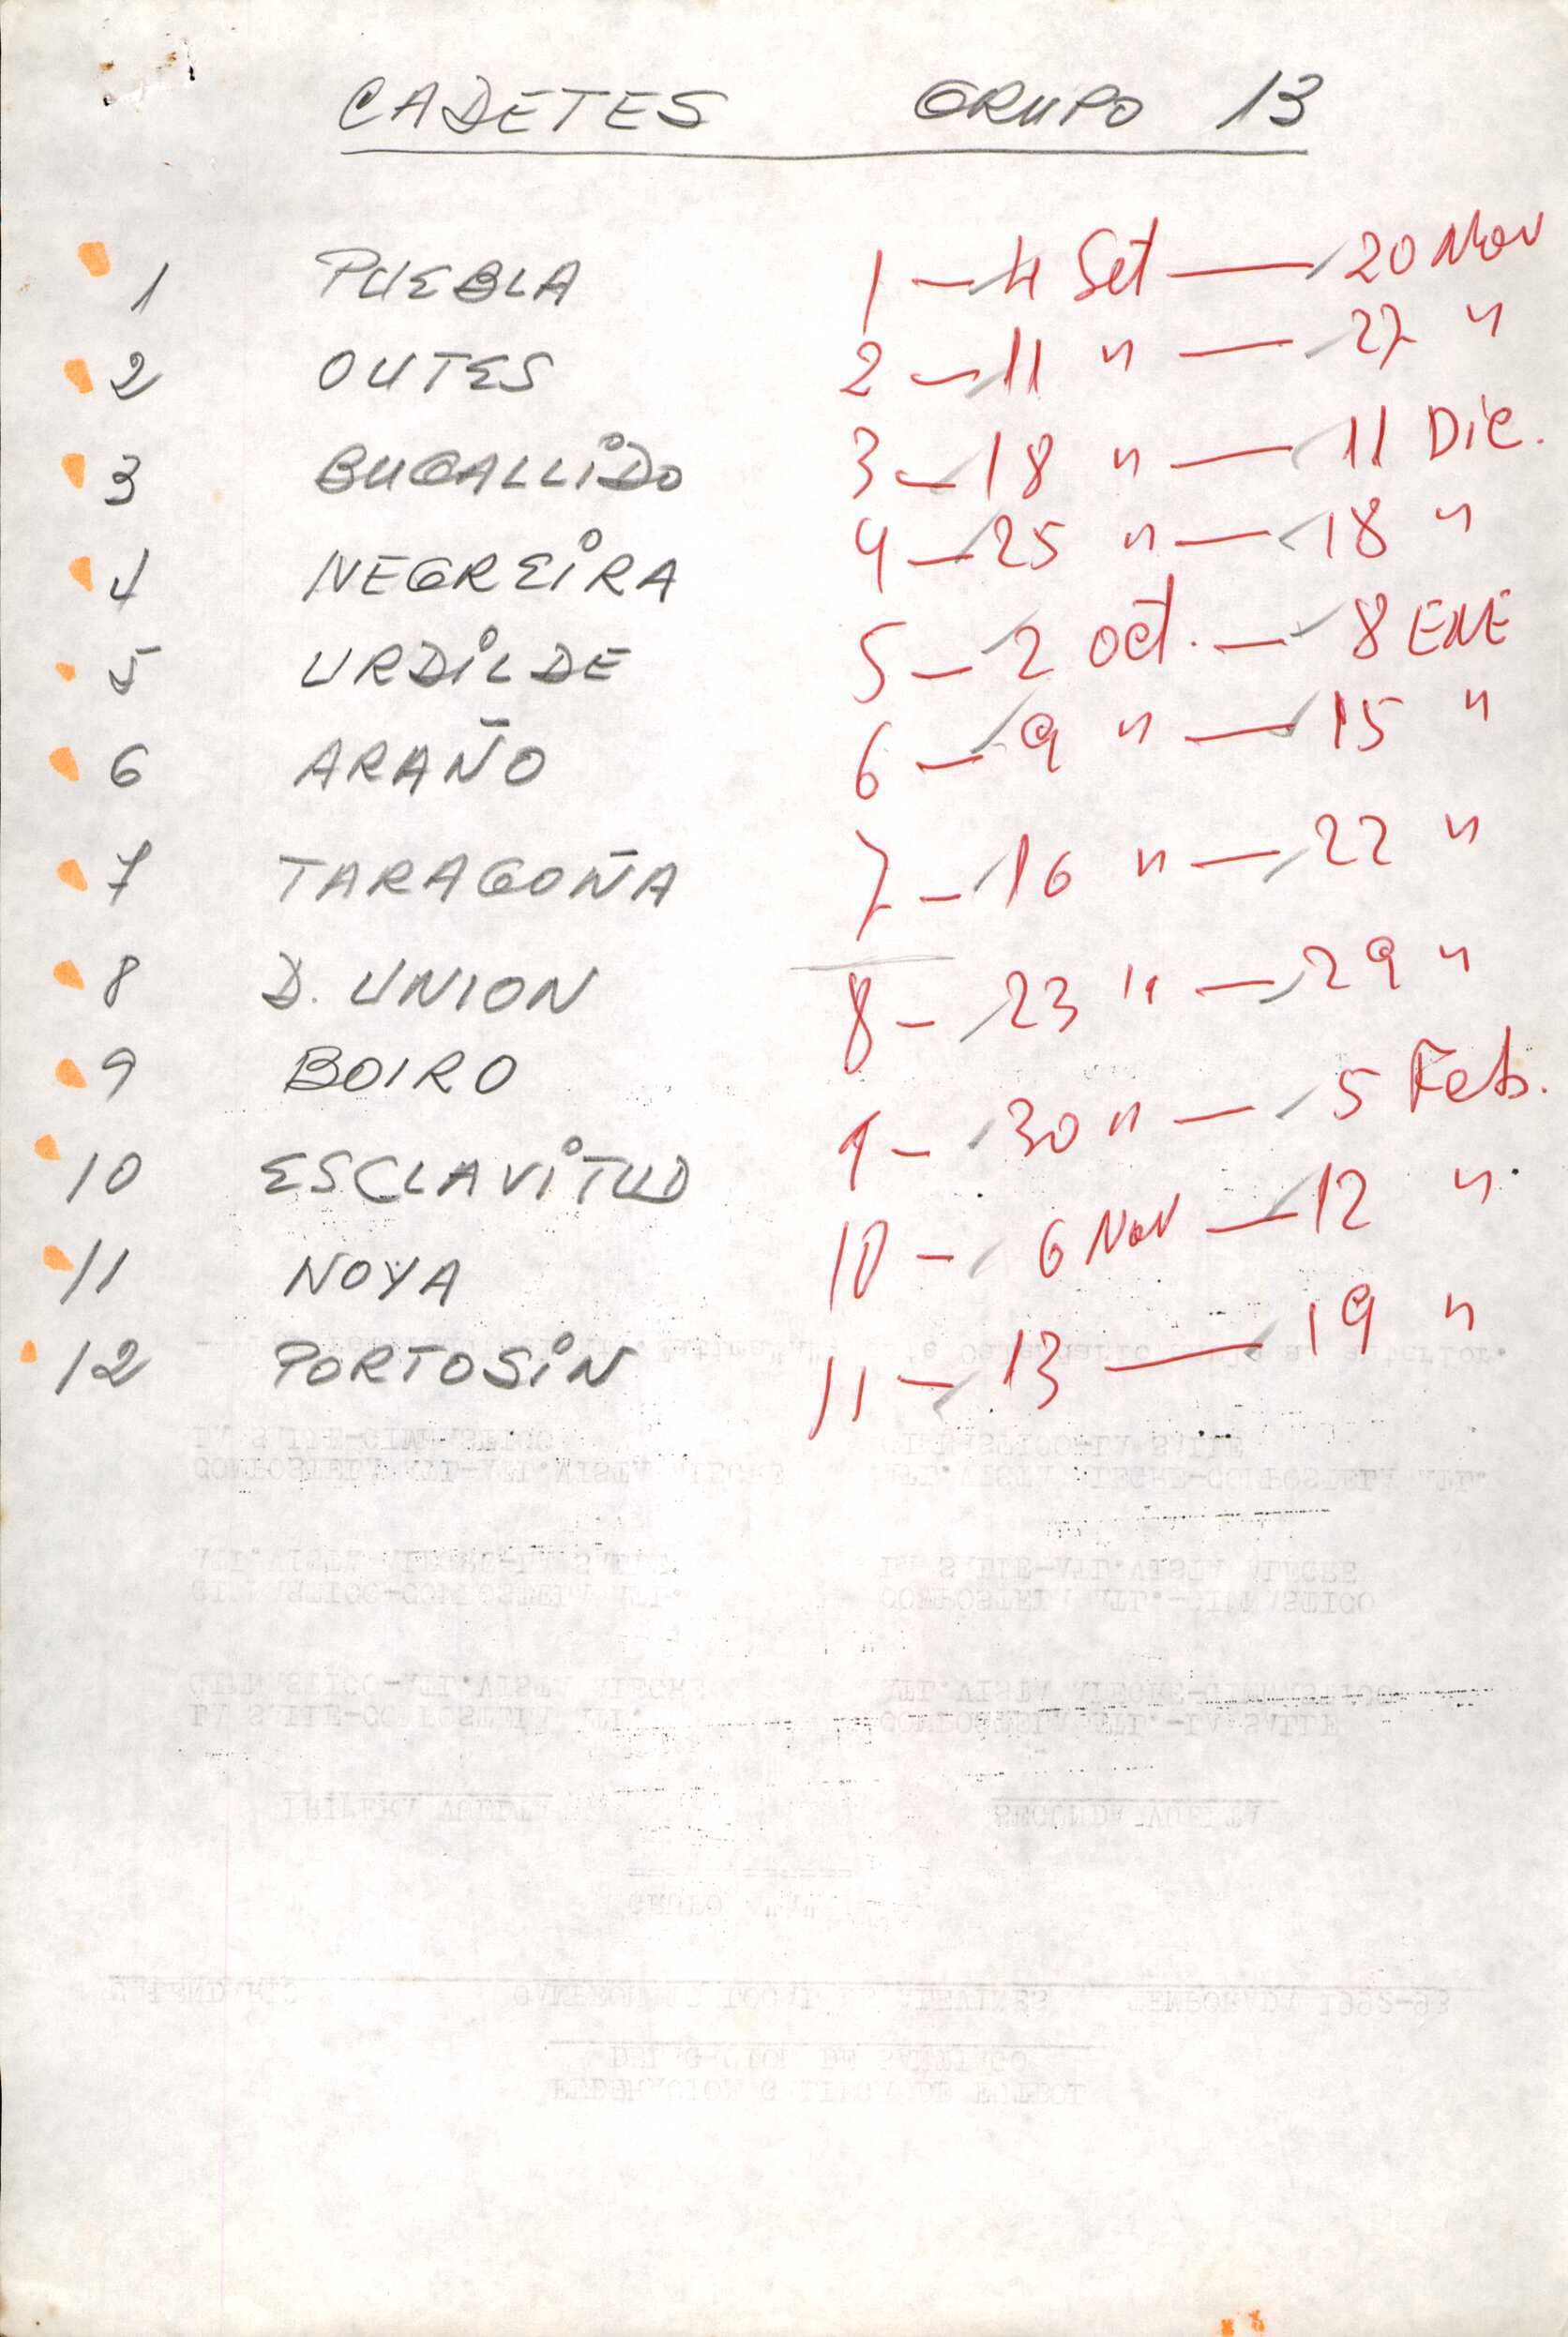 CADETES GRUPO 13
1 PUEBLA 1 - 4 Set - 20 Nov
2 OUTES 2 - 11 " - 27 "
3 BUGALLIDO 3 - 18 " - 11 Dic.
4 NEGREIRA 4 - 25 " - 18 "
5 URDILDE 5 - 2 oct. - 8 ENE
6 ARAÑO 6 - 9 " - 15 "
7 TARAGOÑA 7 - 16 " - 22 "
8 D. UNION 8 - 23 " - 29 "
9 BOIRO 9 - 30 " - 5 Feb.
10 ESCLAVITUD 10 - 6 Nov - 12 "
11 NOYA 11 - 13 - 19 "
12 PORTOSIN